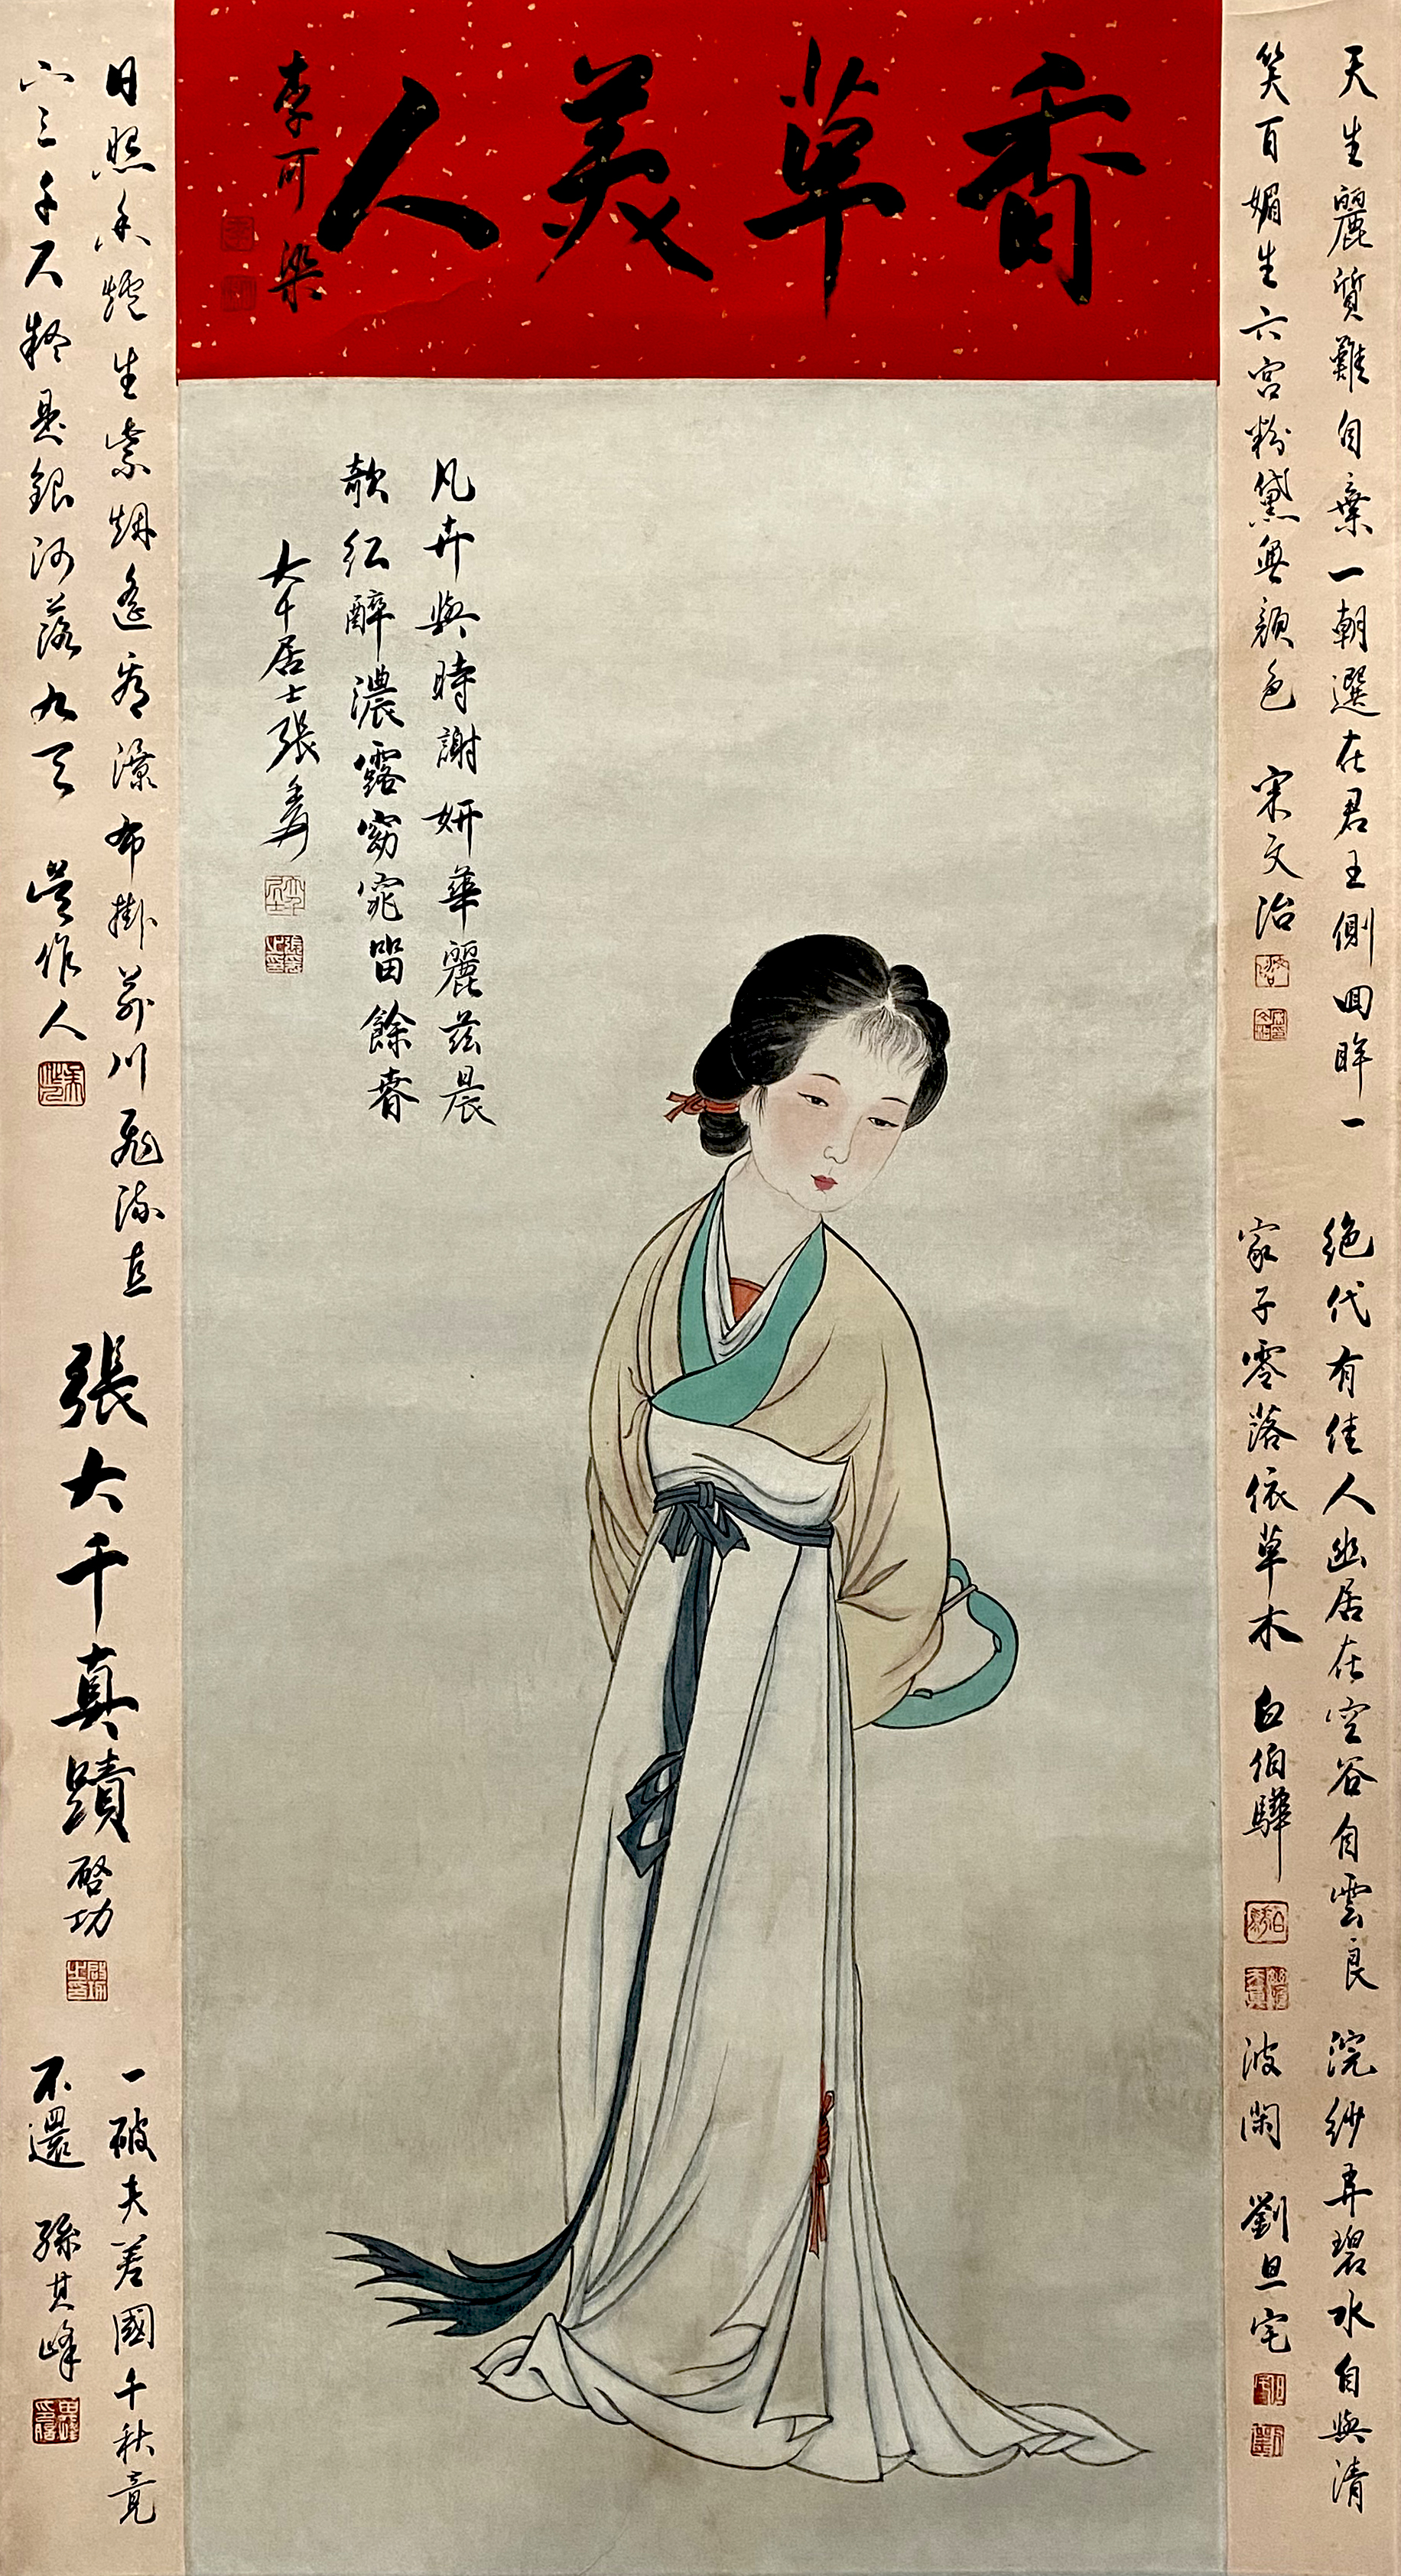 香草美人
李可染
凡卉與時謝妍華麗茲晨
欹紅醉濃露窈窕留餘春
大千居士張爰
天生麗質難自棄一朝選在君王側回眸一
笑百媚生六宮粉黛無顏色
宋文治
絕代有佳人幽居在空谷自雲良
家子零落依草木
白伯驊
浣紗弄碧水自與清
波閑
劉旦宅
日照香爐生紫烟遙看瀑布掛前川飛流直
下三千尺疑是銀河落九天
吳作人
張大千真蹟
啓功
一破夫差國千秋竟
不還
孫其峰